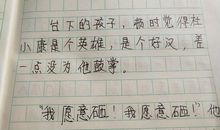 台下的孩子，顿时觉得杜
小康是个英雄，是个好汉，差
一点没为他鼓掌。
“我愿意砸！我愿意砸！”他